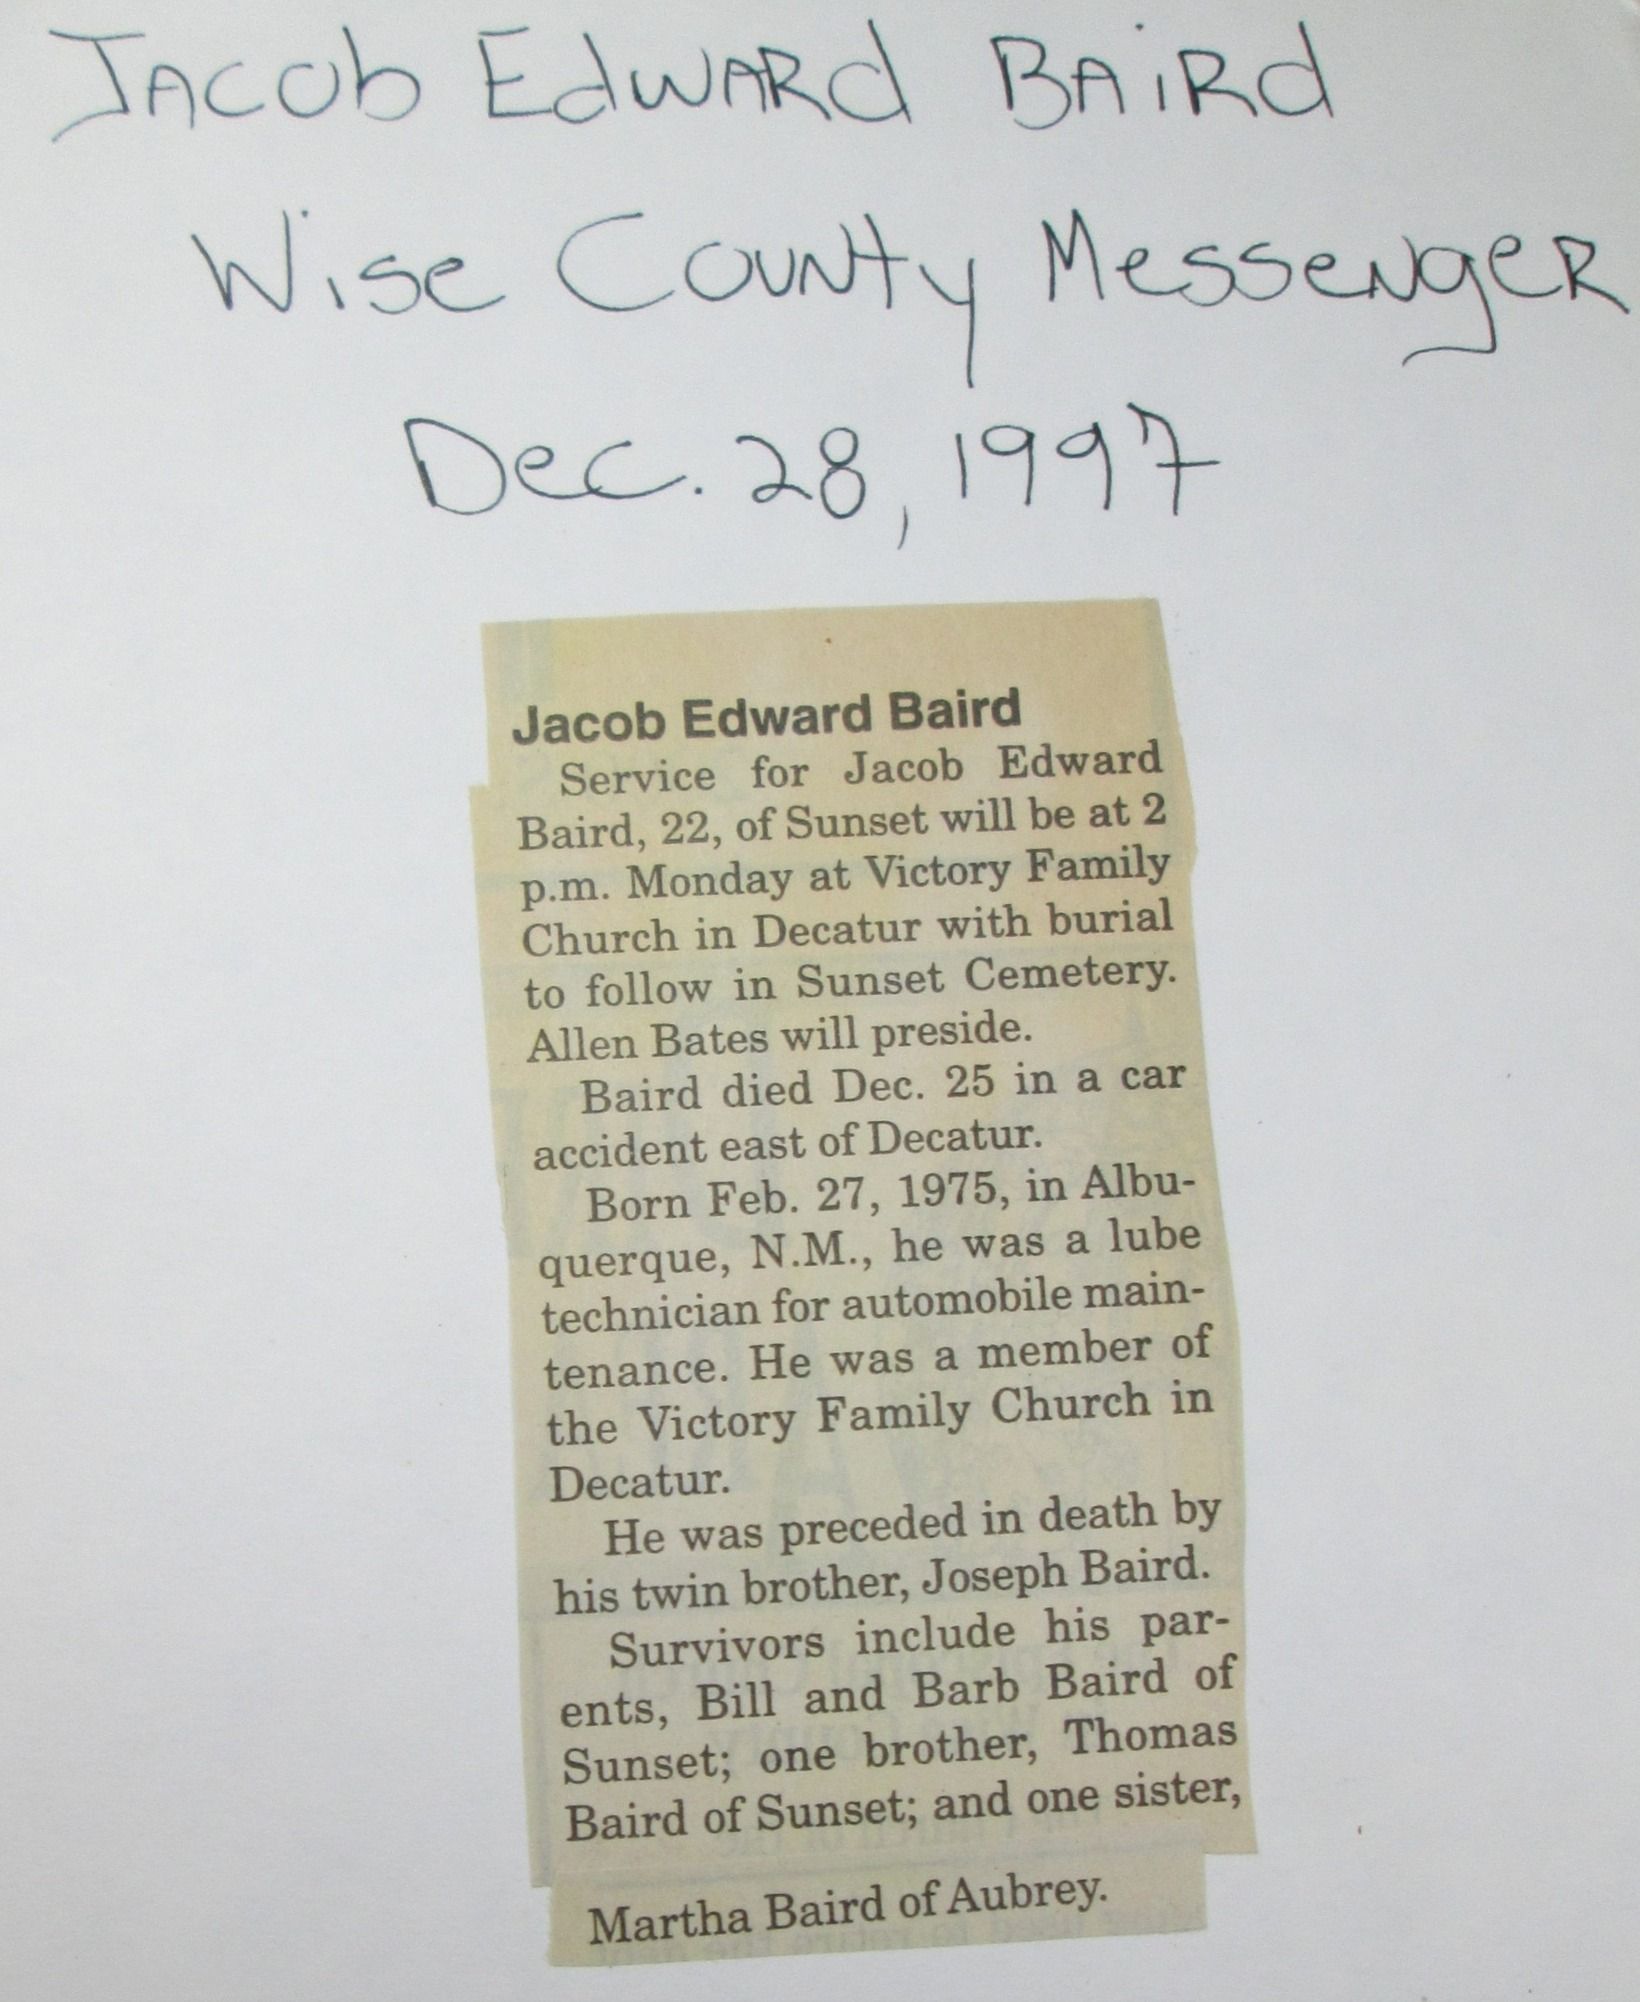 Jacob Edward Baird
Wise County Messenger
Dec. 28, 1997
Jacob Edward Baird
Service for Jacob Edward
Baird, 22, of Sunset will be at 2
p.m. Monday at Victory Family
Church in Decatur with burial
to follow in Sunset Cemetery.
Allen Bates will preside.
Baird died Dec. 25 in a car
accident east of Decatur.
Born Feb. 27, 1975, in Albu-
querque, N.M., he was a lube
technician for automobile main-
tenance. He was a member of
the Victory Family Church in
Decatur.
He was preceded in death by
his twin brother, Joseph Baird.
Survivors include his par-
ents, Bill and Barb Baird of
Sunset; one brother, Thomas
Baird of Sunset; and one sister,
Martha Baird of Aubrey.